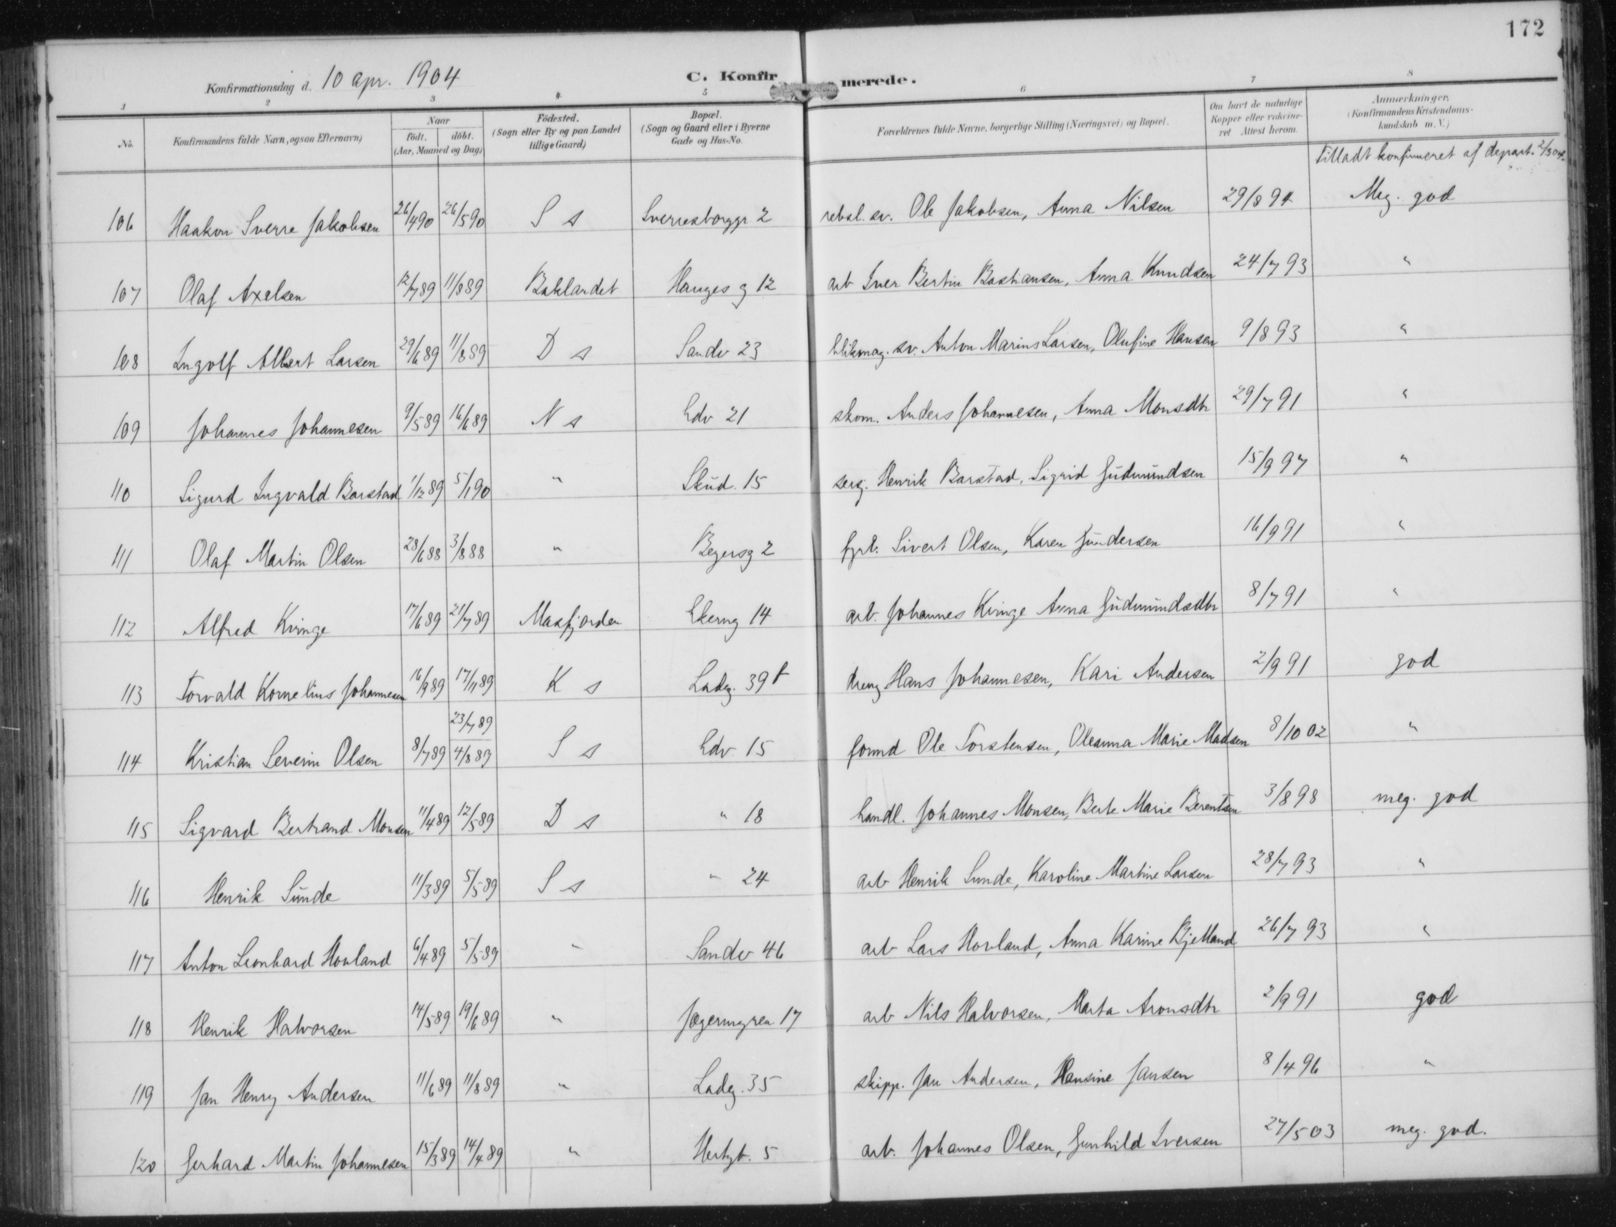 172
Konfirmationsdag d. 10 apr. 1904
C. Konfirmerede.
1 2 3 4 5 6 7 8
No. Konfirmandens fulde Navn, (ogsaa Efternavn) Naar født. døbt. (Aar, Maaned og Dag) Fødested. (Sogn eller By og paa Landet tillige Gaard) Bopæl. (Sogn og Gaard eller i Byerne Gade og Hus-No. Forældrenes fulde Navne, borgerlige Stilling (Næringsvei) og Bopæl. Om havt de naturlige Kopper eller vakcineret Attest herom. Anmærkninger, (Konfirmandens Kristendomskundskab m. V.)
Tilladt konfirmeret af depart. 2/3 04.
106 Haakon Sverre Jakobsen 26/4 90 26/5 90 S s Sverresborggt 2 rebsl. sv. Ole Jakobsen, Anna Nilsen 29/8 94 Meg. god
107 Olaf Axelsen 12/7 89 11/8 89 Baklandet Hauges g 12 arb Iver Bertin Bastiansen, Anna Knudsen 24/7 93 "
108 Ingolf Albert Larsen 29/6 89 11/8 89 D s Sandv 23 blikmag. sv Anton Marius Larsen, Olufine Hansen 9/8 93 "
109 Johannes Johannesen 9/5 89 16/6 89 N s Edv 21 skom. Anders Johannesen, Anna Monsdtr 29/7 91 "
110 Sigurd Ingvald Barstad 1/12 89 5/1 90 " Skud. 15 serg. Henrik Barstad, Sigrid Gudmundsen 15/9 97 "
111 Olaf Martin Olsen 28/6 88 3/8 88 " Beyersg 2 fyrb. Sivert Olsen, Karen Gundersen 16/9 91 "
112 Alfred Kvinge 17/6 89 21/7 89 Masfjorden Ekerng 14 arb. Johannes Kvinge Anna Gudmundsdtr 8/7 91 "
113 Torvald Kornelius Johannesen 16/9 89 17/11 89 K s Ladeg. 39 f dreng Hans Johannesen, Kari Andersen 2/9 91 god
23/7 89
114 Kristian Severin Olsen 8/7 89 4/8 89 S s Edv 15 formd Ole Torstensen, Oleanna Marie Madsen 8/10 02 "
115 Sigvard Bertrand Monsen 11/4 89 12/5 89 D s " 18 handl. Johannes Monsen, Berte Marie Berentsen 3/8 98 meg. god
116 Henrik Sunde 11/3 89 5/5 89 S s " 24 arb Henrik Sunde, Karoline Martine Larsen 28/7 93 "
117 Anton Leonhard Hovland 6/4 89 5/5 89 " Sandv 46 arb Lars Hovland, Anna Karine Bjelland 26/7 93 "
118 Henrik Halvorsen 14/5 89 19/6 89 " Jægermyren 17 arb Nils Halvorsen, Marta Aronsdtr 2/9 91 god
119 Jan Henry Andersen 11/6 89 11/8 89 " Ladeg. 35 skipp. Jan Andersen, Hansine Jansen 8/4 96 "
120 Gerhard Martin Johannesen 15/3 89 14/4 89 " Hertzb. 5 arb. Johannes Olsen, Gunhild Iversen 27/5 03 meg. god.